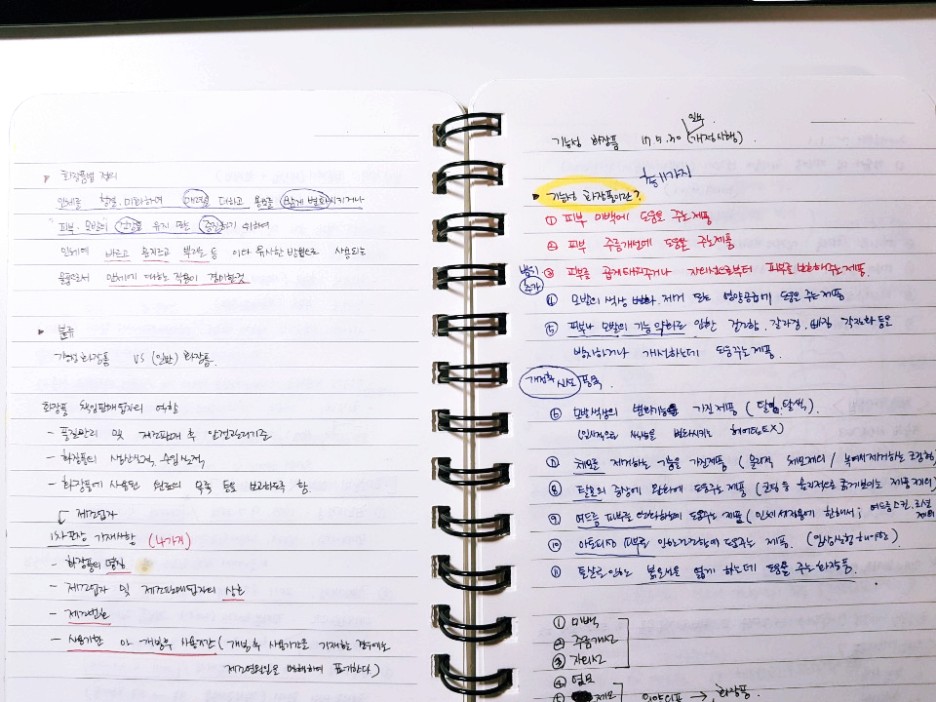 ▶ 화장품법 정의
인체를 청결, 미화하여 매력을 더하고 용모를 밝게 변화시키거나
피부·모발의 건강을 유지 또는 증진하기 위하여
인체에 바르고 문지르고 뿌리는 등 이와 유사한 방법으로 사용되는
물품으로서 인체에 대하는 작용이 경미한것
▶ 분류
기능성화장품 VS (일반) 화장품.
화장품 책임판매업자의 역할
- 품질관리 및 제조판매 후 안전관리기준
- 화장품의 생산실적, 수입실적,
- 화장품에 사용된 원료의 목록 등을 보고하도록 함.
제조업자
1차포장 기재사항 (4가지)
- 화장품의 명칭
- 제조업자 및 제조판매업자의 상호
- 제조번호
- 사용기한 or 개봉후 사용기간 (개봉 후 사용기간을 기재한 경우에는
제조연월일을 병행하여 표기한다)
기능성 화장품 17. 5. 30 (개정시행).
총 11가지
▶ 기능성 화장품이란?
① 피부 미백에 도움을 주는 제품
② 피부 주름개선에 도움을 주는 제품
③ 피부를 곱게 태워주거나 자외선으로부터 피부를 보호해주는 제품.
추가
④ 모발의 색상 변화, 제거 또는 영양공급에 도움을 주는 제품
⑤ 피부나 모발의 기능 약화로 인한 건조함, 갈라짐, 빠짐, 각질화 등을
방지하거나 개선하는데 도움주는 제품.
개정후 신설 품목
⑥ 모발색상의 변화기능을 가진 제품 (탈염, 탈색).
(일시적으로 색상을 변화시키는 헤어틴트X)
⑦ 체모를 제거하는 기능을 가진제품 (물리적 제모제외
⑧ 탈모의 증상에 완화에 도움주는 제품 (코팅 등 물리적으로 굵게보이는 제품 제외)
⑨ 여드름 피부를 완화하는데 도움주는 제품 (인체세정용에 한해서;
⑩ 아토피성 피부로 인한 건조함에 도움주는 제품.
⑪ 튼살로 인한 붉은선을 엷게 하는데 도움을 주는 화장품.
① 미백
② 주름개선
③ 자외선
④ 염모
⑤ 제모
의약외품 → 화장품.